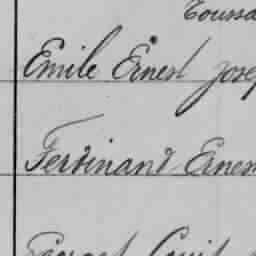 Toussa
Emile Ernest Josep
Ferdinand Ernes